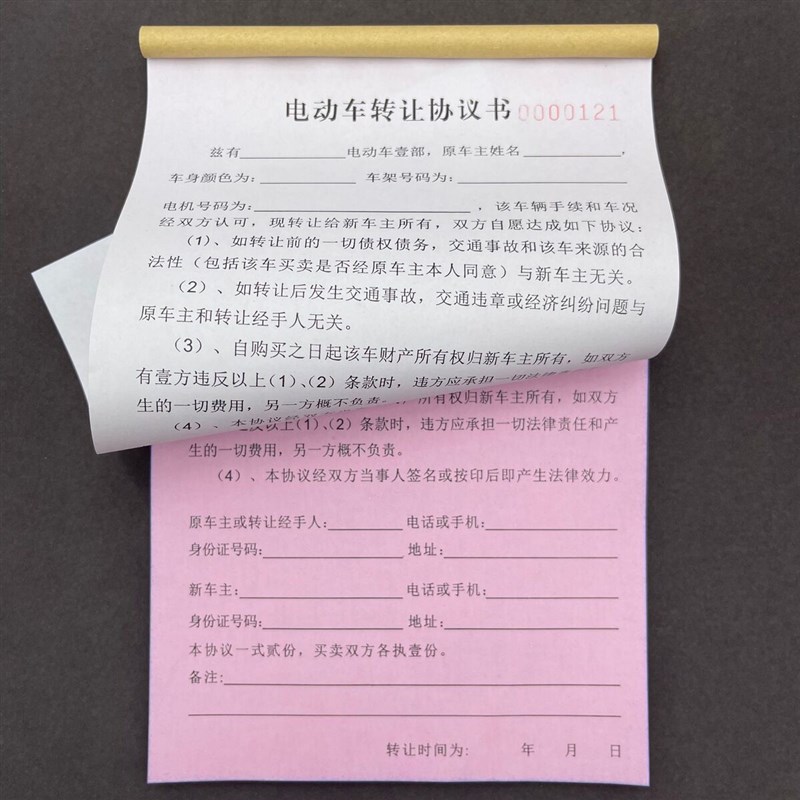 电动车转让协议书 0000121
兹有____________电动车壹部，原车主姓名____________，
车身颜色为：____________ 车架号码为：____________________
电机号码为：____________________，该车辆手续和车况
经双方认可，现转让给新车主所有，双方自愿达成如下协议：
（1）、如转让前的一切债权债务，交通事故和该车来源的合
法性（包括该车买卖是否经原车主本人同意）与新车主无关。
（2）、如转让后发生交通事故，交通违章或经济纠纷问题与
原车主和转让经手人无关。
（3）、自购买之日起该车财产所有权归新车主所有，如双方
有壹方违反以上（1）、（2）条款时，违方应承担一切法律
生的一切费用，另一方概不负责。
（4）、本协议经双方
所有权归新车主所有，如双方
以上（1）、（2）条款时，违方应承担一切法律责任和产
生的一切费用，另一方概不负责。
（4）、本协议经双方当事人签名或按印后即产生法律效力。
原车主或转让经手人：__________ 电话或手机：______________
身份证号码：__________________ 地址：____________________
新车主：______________________ 电话或手机：______________
身份证号码：__________________ 地址：____________________
本协议一式贰份，买卖双方各执壹份。
备注：____________________________________________
转让时间为： 年 月 日